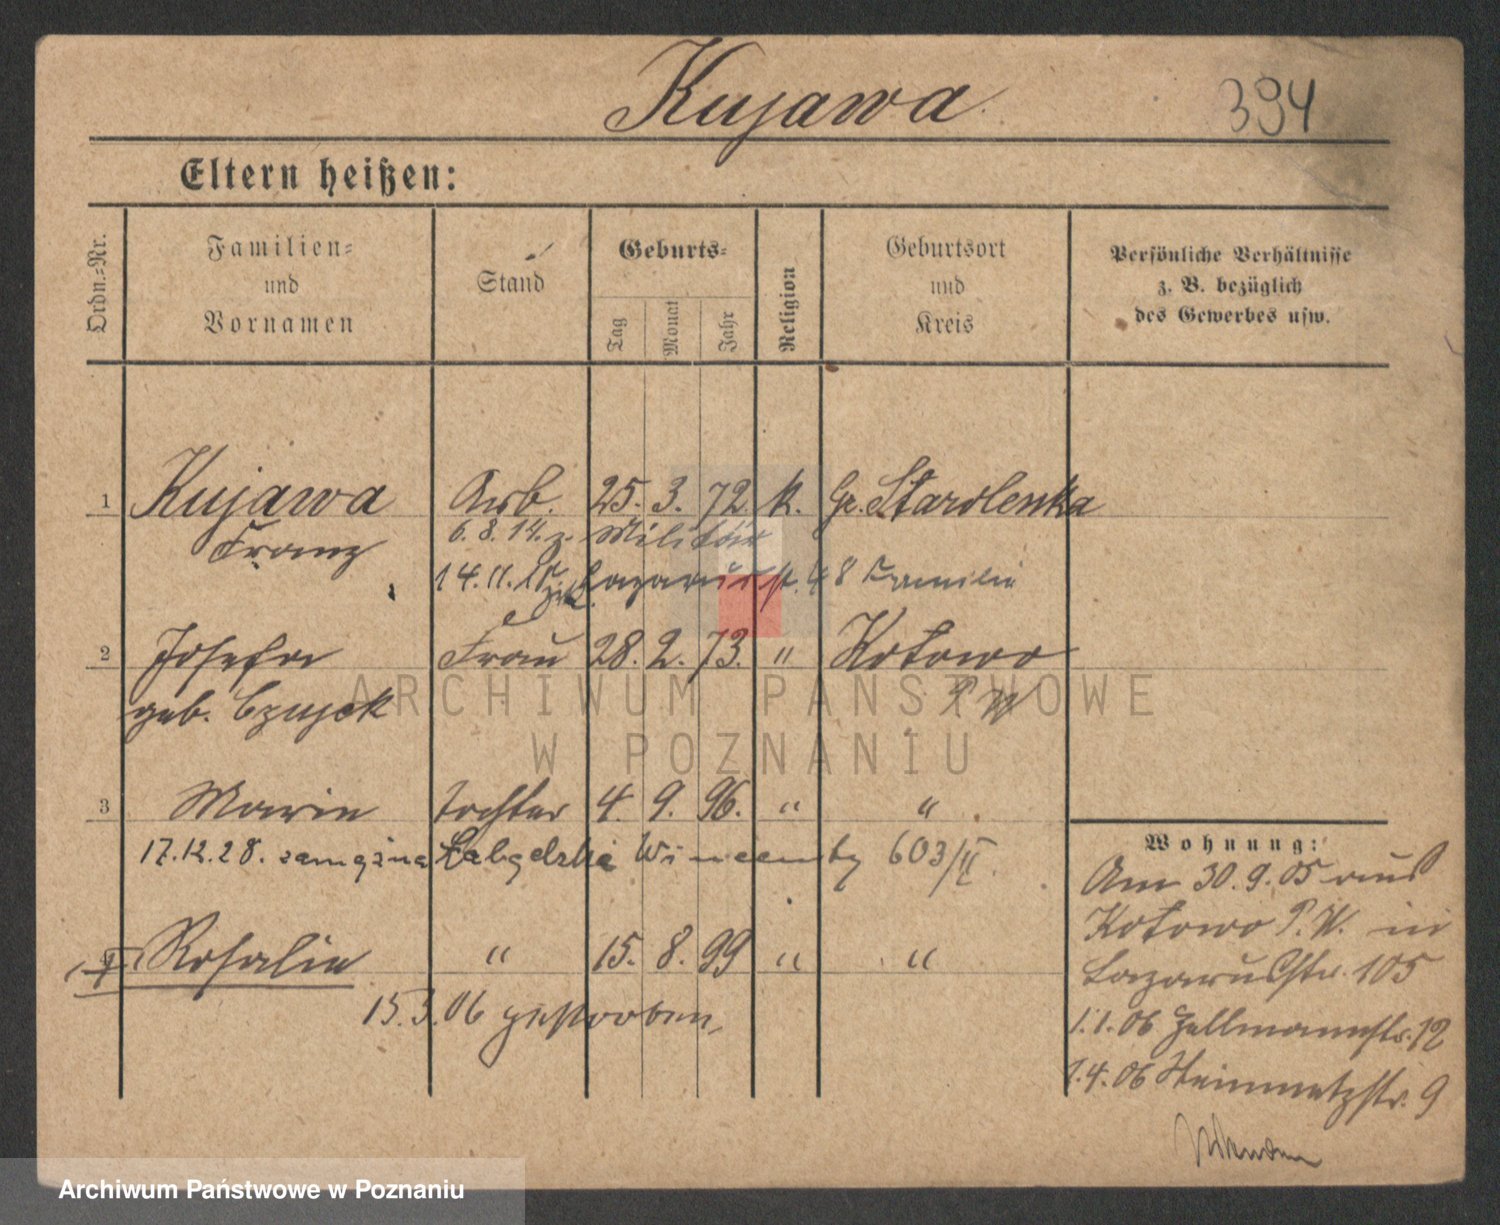 Kujawa
394
Eltern heißen:
Ordn.-Nr.
Familien=
und
Vornamen
Stand
Geburts=
Tag
Monat
Jahr
Religion
Geburtsort
und
Kreis
Persönliche Verhältnisse
z. B. bezüglich
des Gewerbes usw.
1 Kujawa Arb. 25. 3. 72 k. Gr. Starolenka
Franz 6. 8. 14. z. Militär
14. 11. Lazarusstr. 48 Familie
2 Josefa Frau 28. 2. 73. " Kotowo
geb. Czujek P W
3 Marie Tochter 4. 9. 96. " "
17.12.28. zamężna Wincenty 603/II.
4 Rosalie " 15. 8. 99 " "
15.3.06 gestorben
Wohnung:
Am 30.9.05 aus
Kotowo P. W. in
Lazarusstr. 105
1.1.06 Hellmannstr. 12
1.4.06 Steinmetzstr. 9
ARCHIWUM PAŃSTWOWE
W POZNANIU
Archiwum Państwowe w Poznaniu